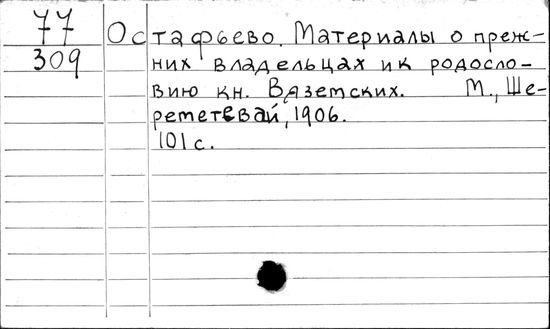 77
309
Остафьево. Материалы о преж-
них владельцах и к родосло-
вию кн. Вяземских. М., Ше-
реметевай, 1906.
101 с.